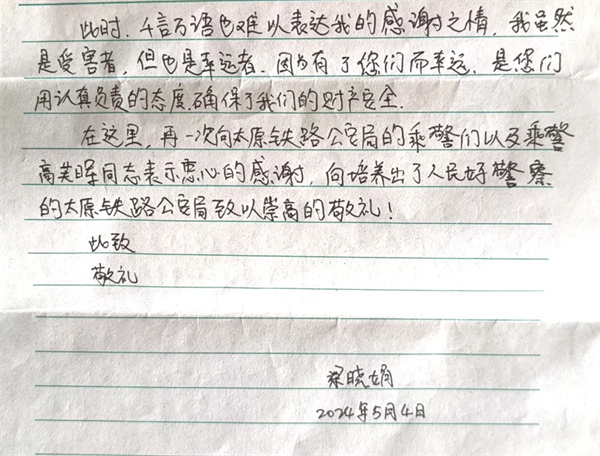 此时，千言万语也难以表达我的感谢之情，我虽然
是受害者，但也是幸运者，因为有了您们而幸运，是您们
用认真负责的态度，确保了我们的财产安全．
在这里，再一次向太原铁路公安局的乘警们以及乘警
高芙晖同志表示衷心的感谢，向培养出了人民好警察
的太原铁路公安局致以崇高的敬礼！
此致
敬礼
梁晓娟
2024年5月4日